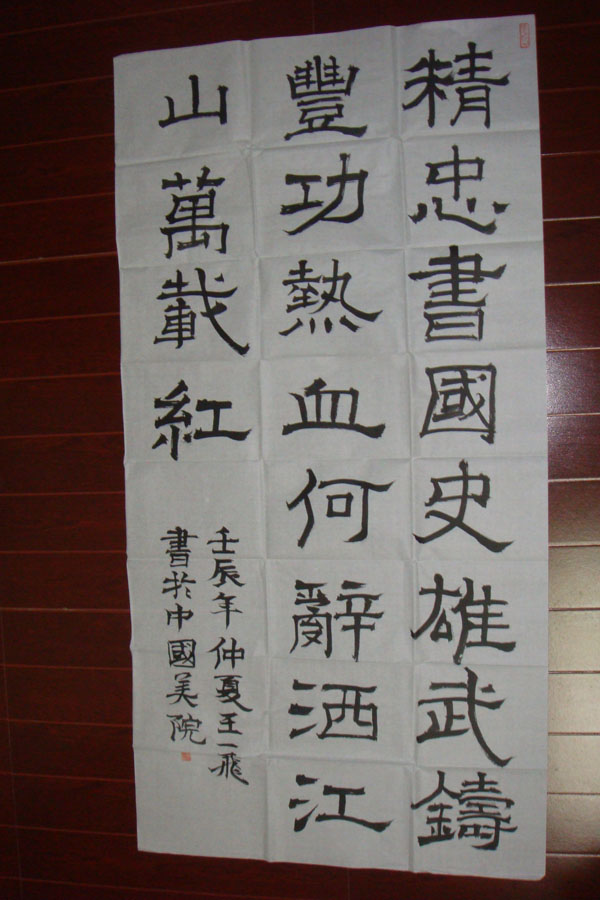 精忠書國史雄武鑄
豐功熱血何辭洒江
山萬載紅
壬辰年仲夏王一飛
書於中國美院